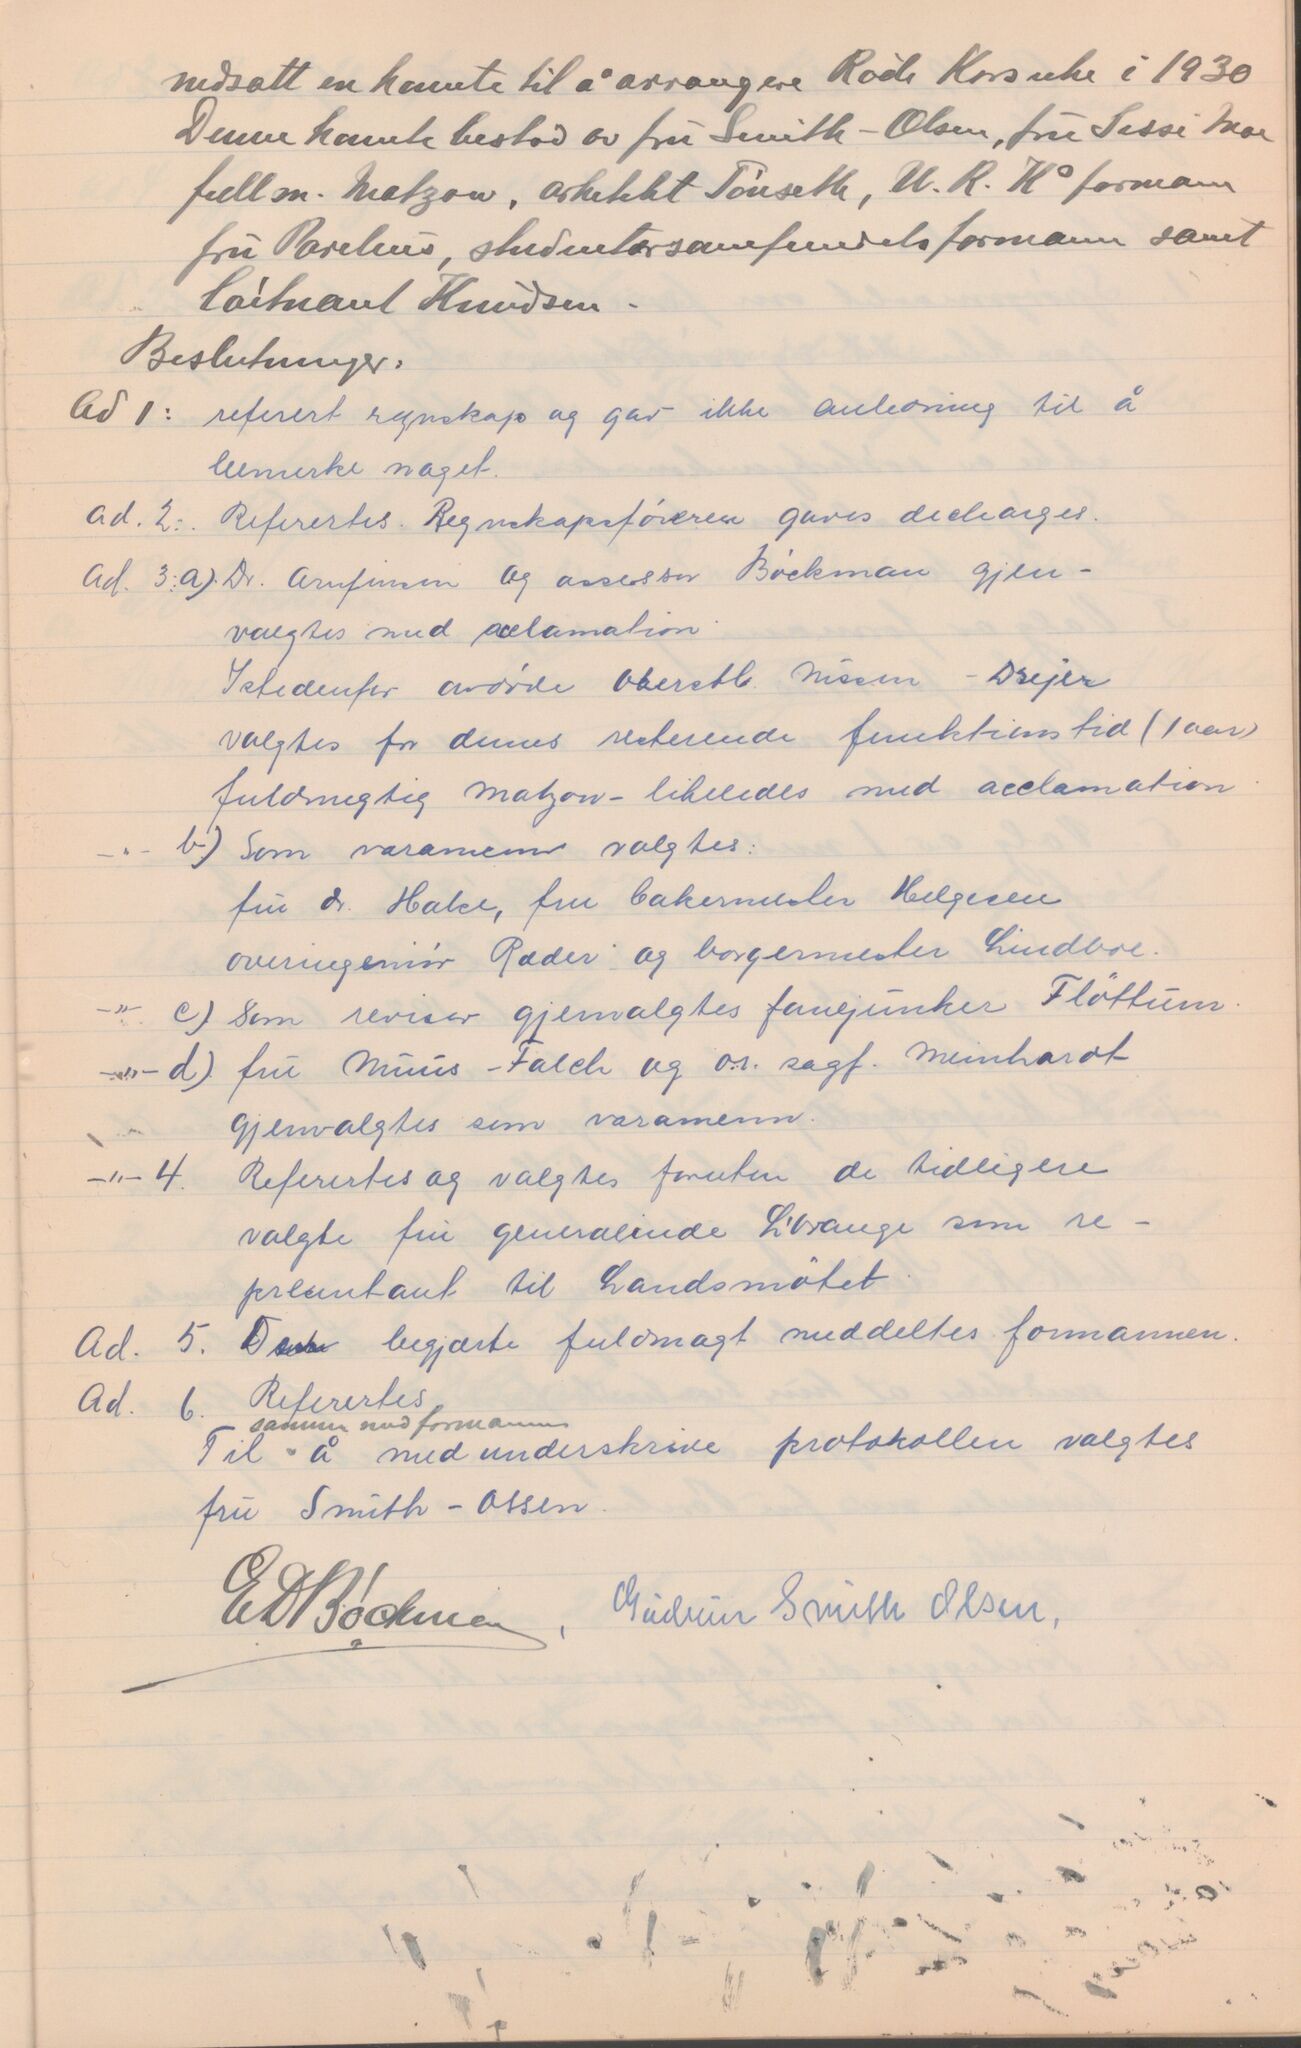 nedsatt en komite til å arrangere Röde Korsuke i 1930
Denne komite bestod av fru Smith-Olsen, fru Sissi Moe
fullm. Matzow, arkitekt Tönseth, U. R. K.s formann
fru Parelius, studentersamfundets formann samt
löitnant Knudsen -
Beslutninger:
Ad 1: referert regnskap og gav ikke anledning til å
bemerke noget.
Ad. 2: Referertes. Regnskapsföreren gaves decharges.
Ad. 3: a). Dr. Arnfinsen og assessor Böckman gjen-
valgtes med acclamation
Istedenfor avdöde oberstl. Nissen - Drejer
valgtes for dennes resterende funktionstid (1 aar)
fuldmegtig Matzow - likeledes med acclamation
-"- b) Som varamenn valgtes:
fru dr. Hake, fru bakermester Helgesen
overingeniör Ræder og borgermester Lindboe.
-"- c) Som revisor gjenvalgtes fanejunker Flöttum.
-"- d). fru Muus-Falck og o.r. sagf. Meinhardt
gjenvalgtes som varamenn.
-"- 4. Referertes og valgtes foruten de tidligere
valgte fru generalinde L'orange som re-
presentant til Landsmötet
Ad. 5. Den begjærte fuldmagt meddeltes formannen.
Ad. 6. Referertes
sammen med formannen
Til å medunderskrive protokollen valgtes
fru Smith-Olsen.
E D Böckman, Gudrun Smith Olsen.